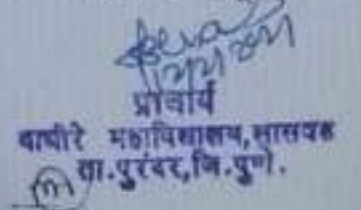 प्राचार्य
वाघीरे महाविद्यालय,सासवड
ता.पुरंदर,जि.पुणे.